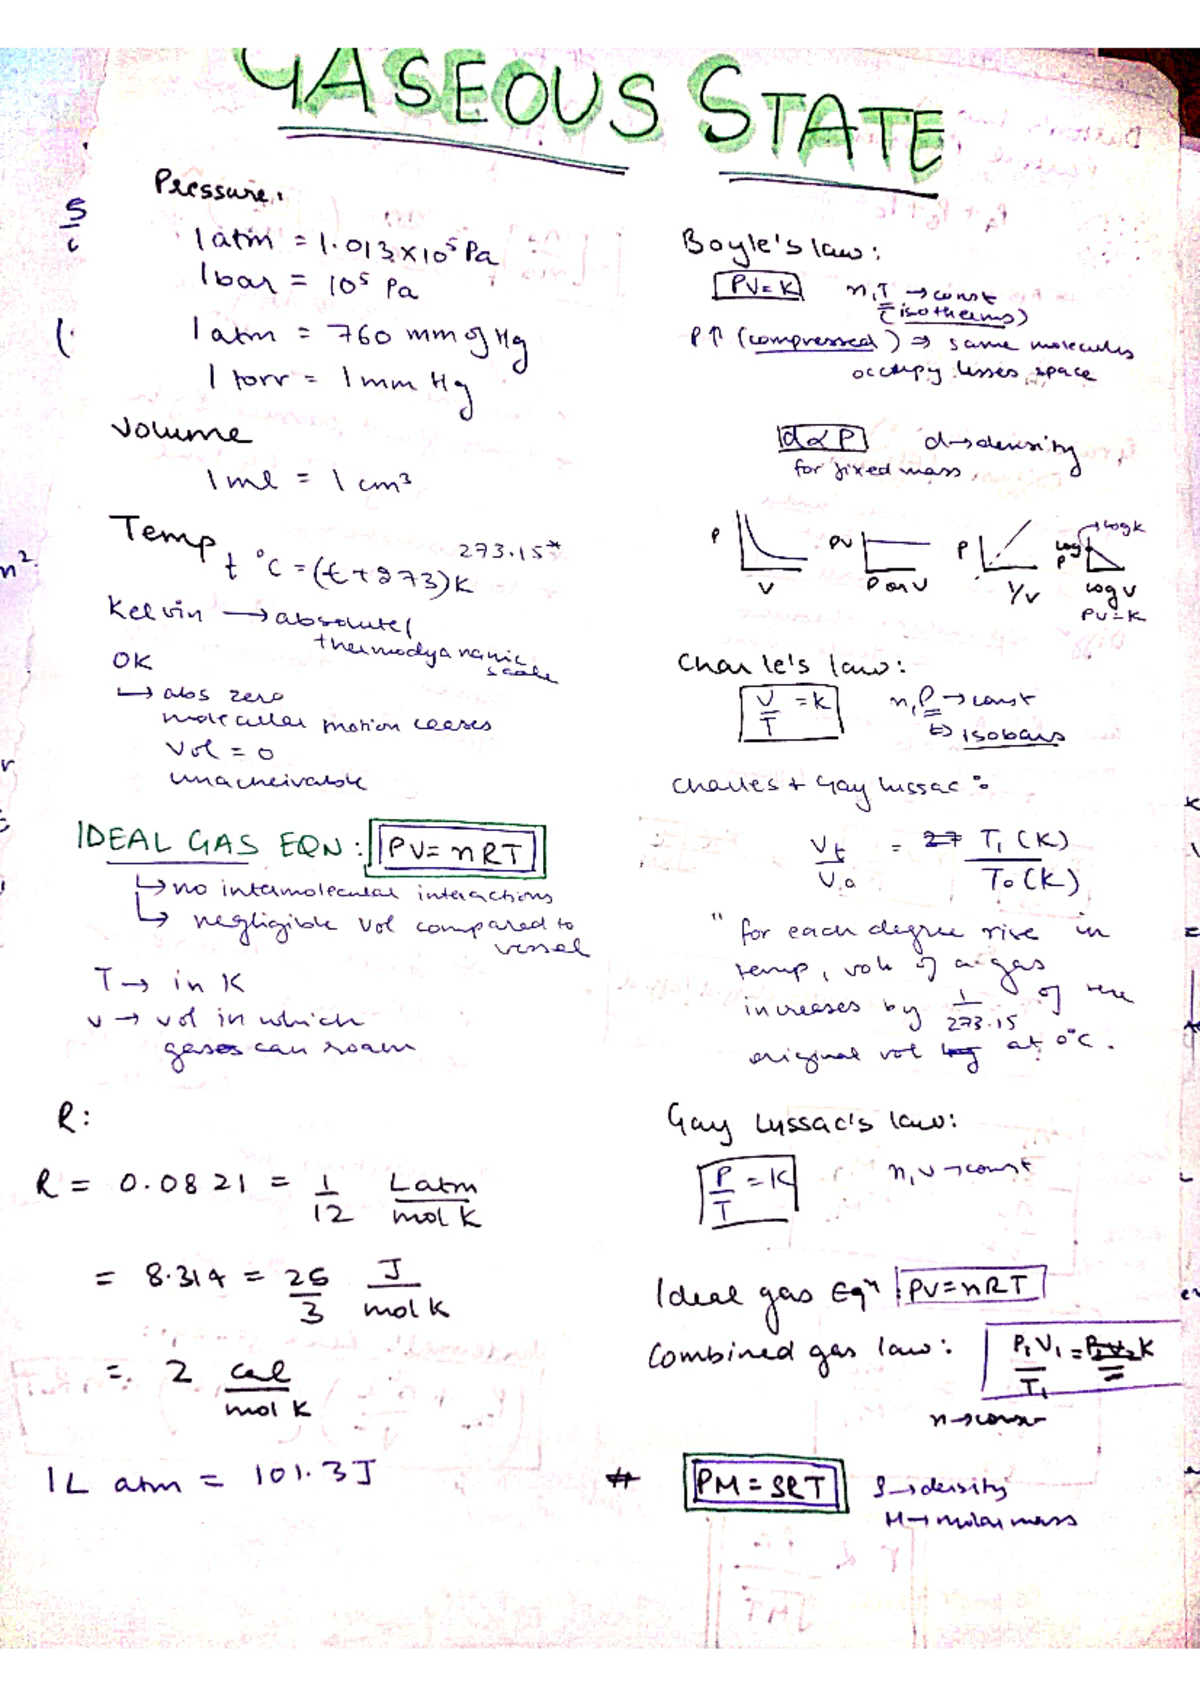 GASEOUS STATE
Pressure:
1 atm = 1.013×10⁵ Pa
1 bar = 10⁵ Pa
1 atm = 760 mm of Hg
1 torr = 1 mm Hg
Volume
1 ml = 1 cm³
Temp
273.15*
t °C = (t + 273) K
Kelvin → absolute/
thermodyanamic
scale
0K
↳ abs zero
molecular motion ceases
Vol = 0
unacheivable
IDEAL GAS EQN: PV = nRT
↳ no intermolecular interactions
↳ negligible vol compared to
vessel
T → in K
v → vol in which
gases can roam
R:
R = 0.0821 = 1/12 L atm / mol K
= 8.314 = 25/3 J / mol K
= 2 cal / mol K
1L atm = 101.3J
Boyle's law:
PV = K n,T → const
(isotherms)
P↑ (compressed) ⇒ same molecules
occupy lesser space
d ∝ P d → density
for fixed mass
P V
PV P or V
P 1/V
log P log V → log K
PV = K
Charle's law:
V/T = K n,P → const
↳ isobars
Charles + Gay Lussac:
Vt/V₀ = 27 T₁ (K) / T₀ (K)
" for each degree rise in
temp, vol of a gas
increases by 1/273.15 of the
original vol at 0°C.
Gay Lussac's law:
P/T = K n,v → const
Ideal gas Eqⁿ: PV = nRT
Combined gas law: P₁V₁/T₁ = P₂V₂ K
n → const
# PM = ρRT ρ → density
M → molar mass